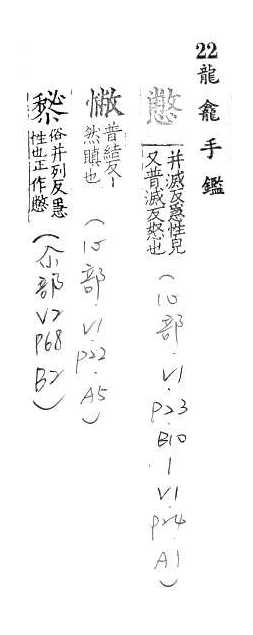 22 龍龕手鑑
憋 并滅反惡性皃
又普滅反怒也
(心部.V1.P23.B10、V1.P24.A1)
憿 普結反〡
然瞋也
(心部.V1.P22.A5)
俗并列反惡
性也正作憋
(尒部V2P68B2)